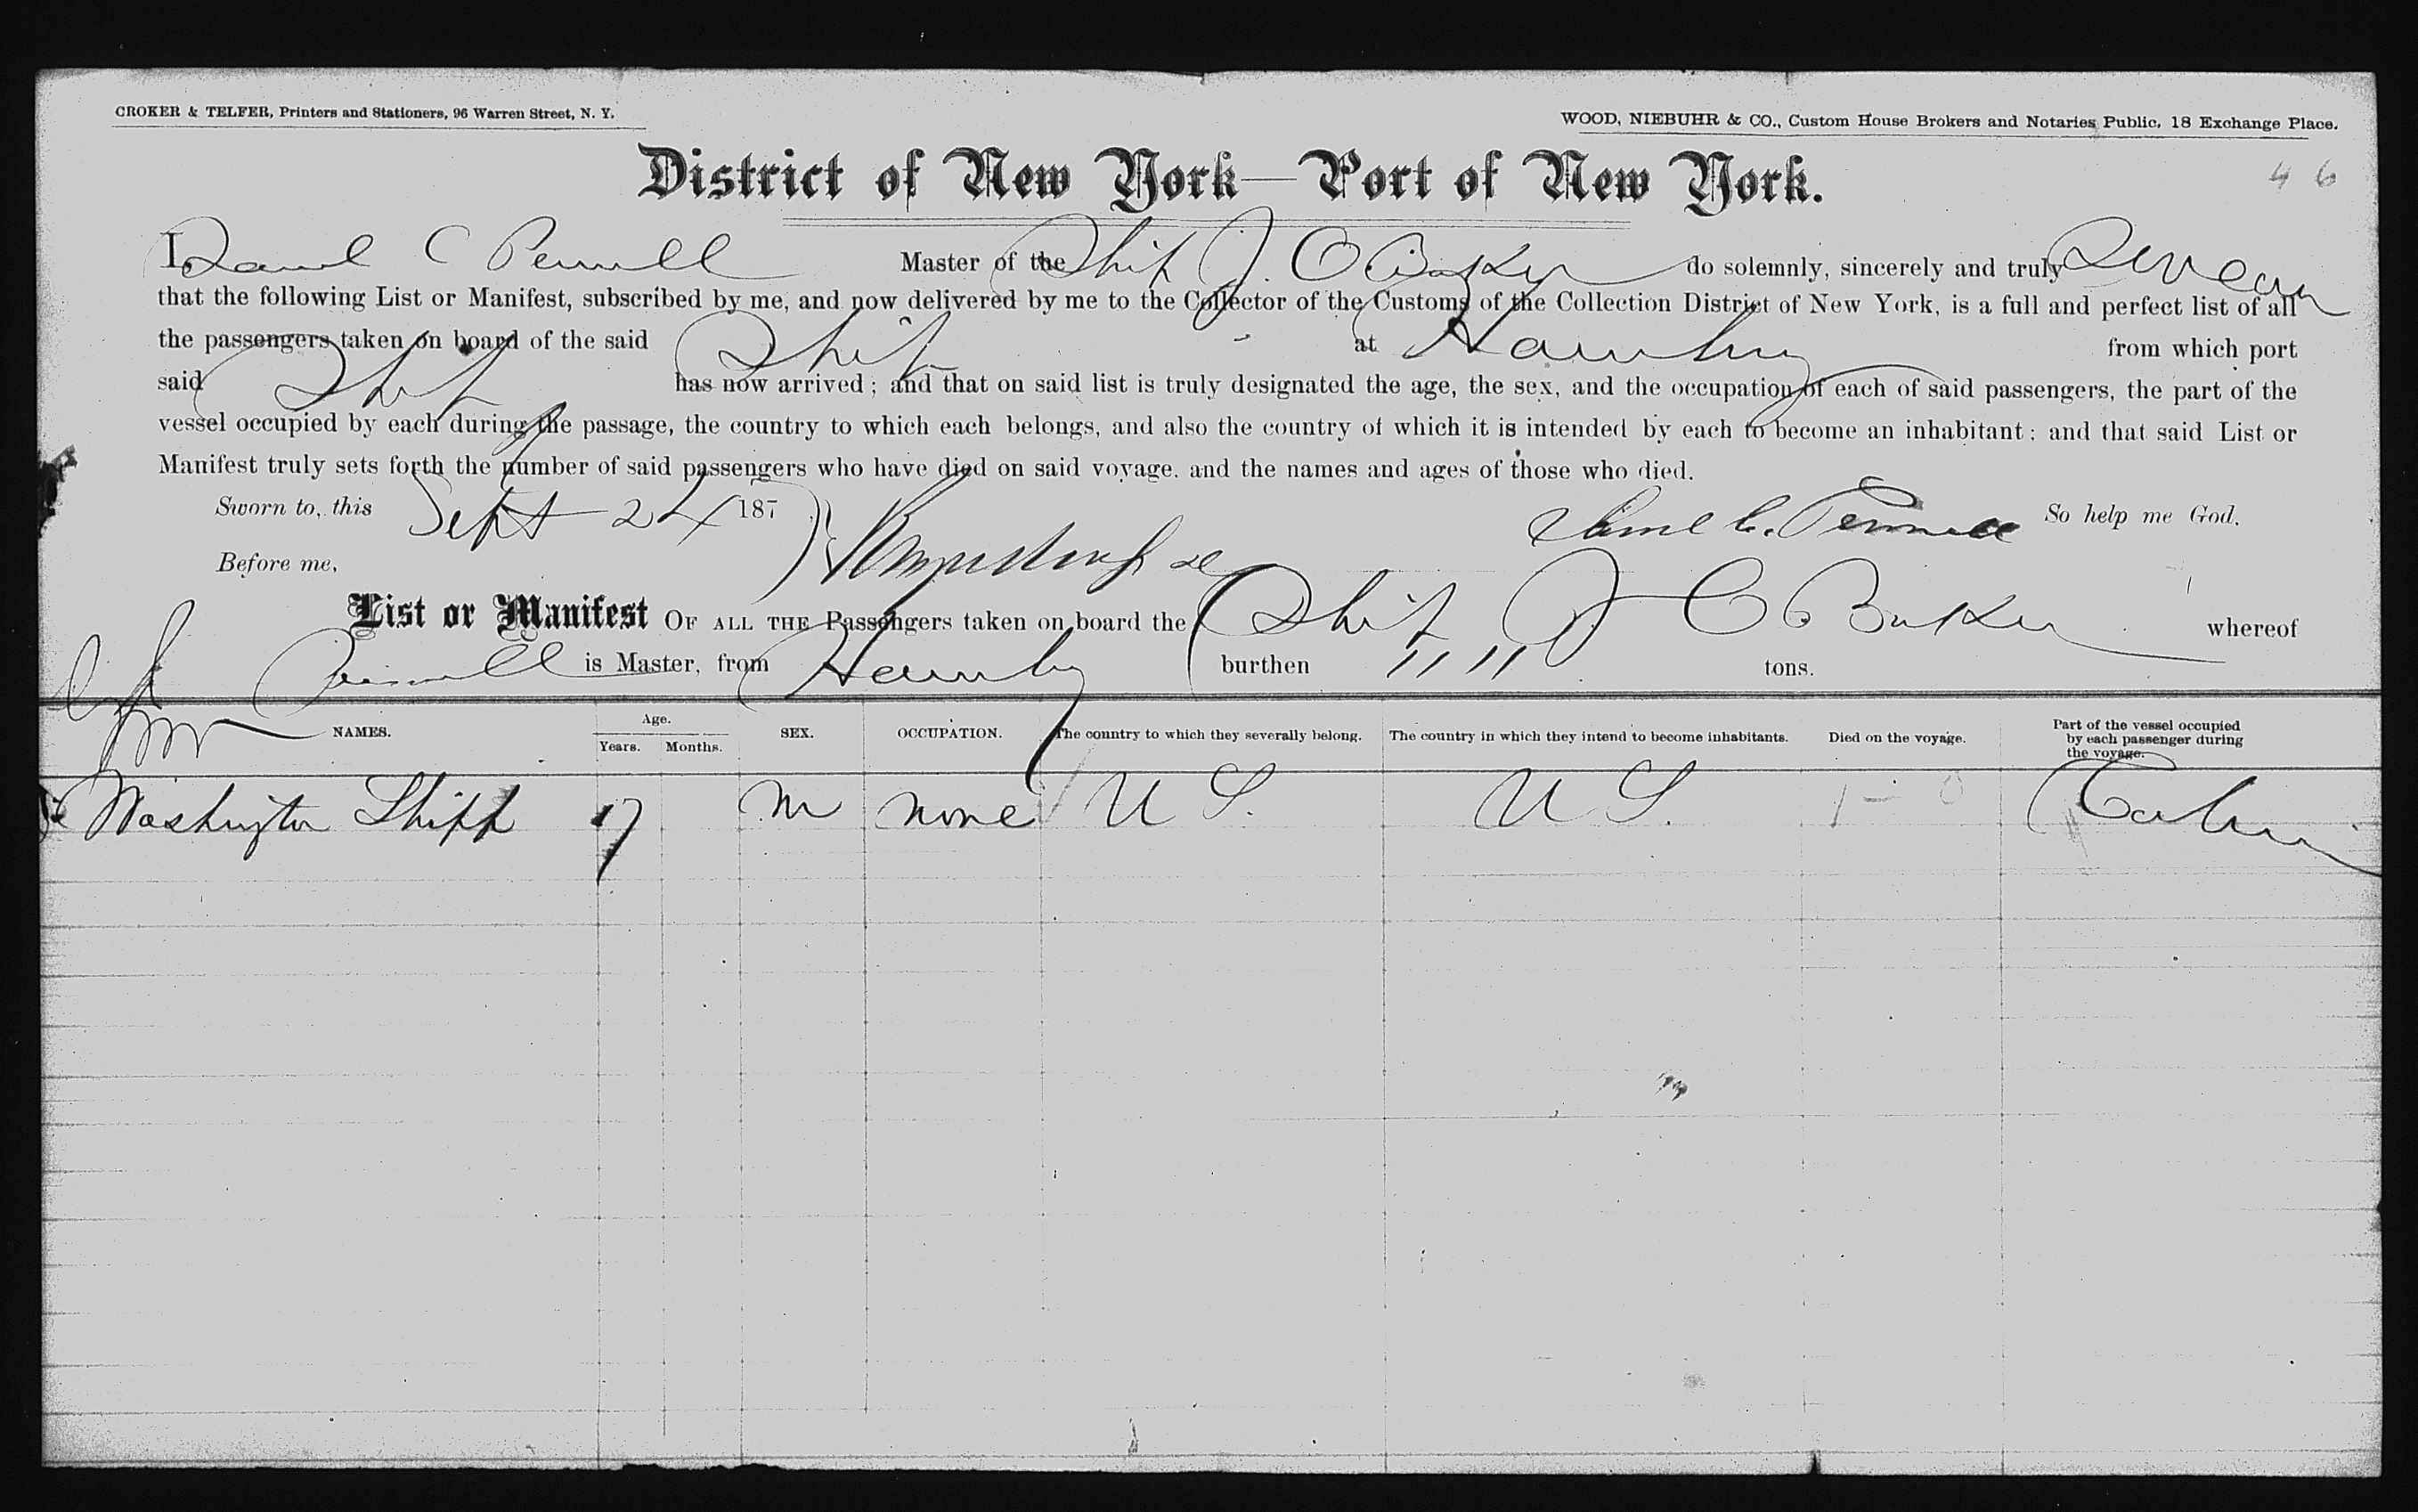 CROKER & TELFER, Printers and Stationers, 96 Warren Street, N. Y.
WOOD, NIEBUHR & CO., Custom House Brokers and Notaries Public, 18 Exchange Place.
District of New York—Port of New York.
46
I, C Pennell Master of the Ship J. C Baker do solemnly, sincerely and truly Swear
that the following List or Manifest, subscribed by me, and now delivered by me to the Collector of the Customs of the Collection District of New York, is a full and perfect list of all
the passengers taken on board of the said Ship at Hamburg from which port
said Ship has now arrived; and that on said list is truly designated the age, the sex, and the occupation of each of said passengers, the part of the
vessel occupied by each during the passage, the country to which each belongs, and also the country of which it is intended by each to become an inhabitant; and that said List or
Manifest truly sets forth the number of said passengers who have died on said voyage. and the names and ages of those who died.
Sworn to, this Sept 24 187 C. Pennell So help me God.
Before me,
List or Manifest OF ALL THE Passengers taken on board the Ship J C Baker whereof
Pennell is Master, from Hamburg burthen 1111 tons.
NAMES. Age. Years. Months. SEX. OCCUPATION. The country to which they severally belong. The country in which they intend to become inhabitants. Died on the voyage. Part of the vessel occupied by each passenger during the voyage.
Washington Shipp 17 M none U S. U S. Cabin